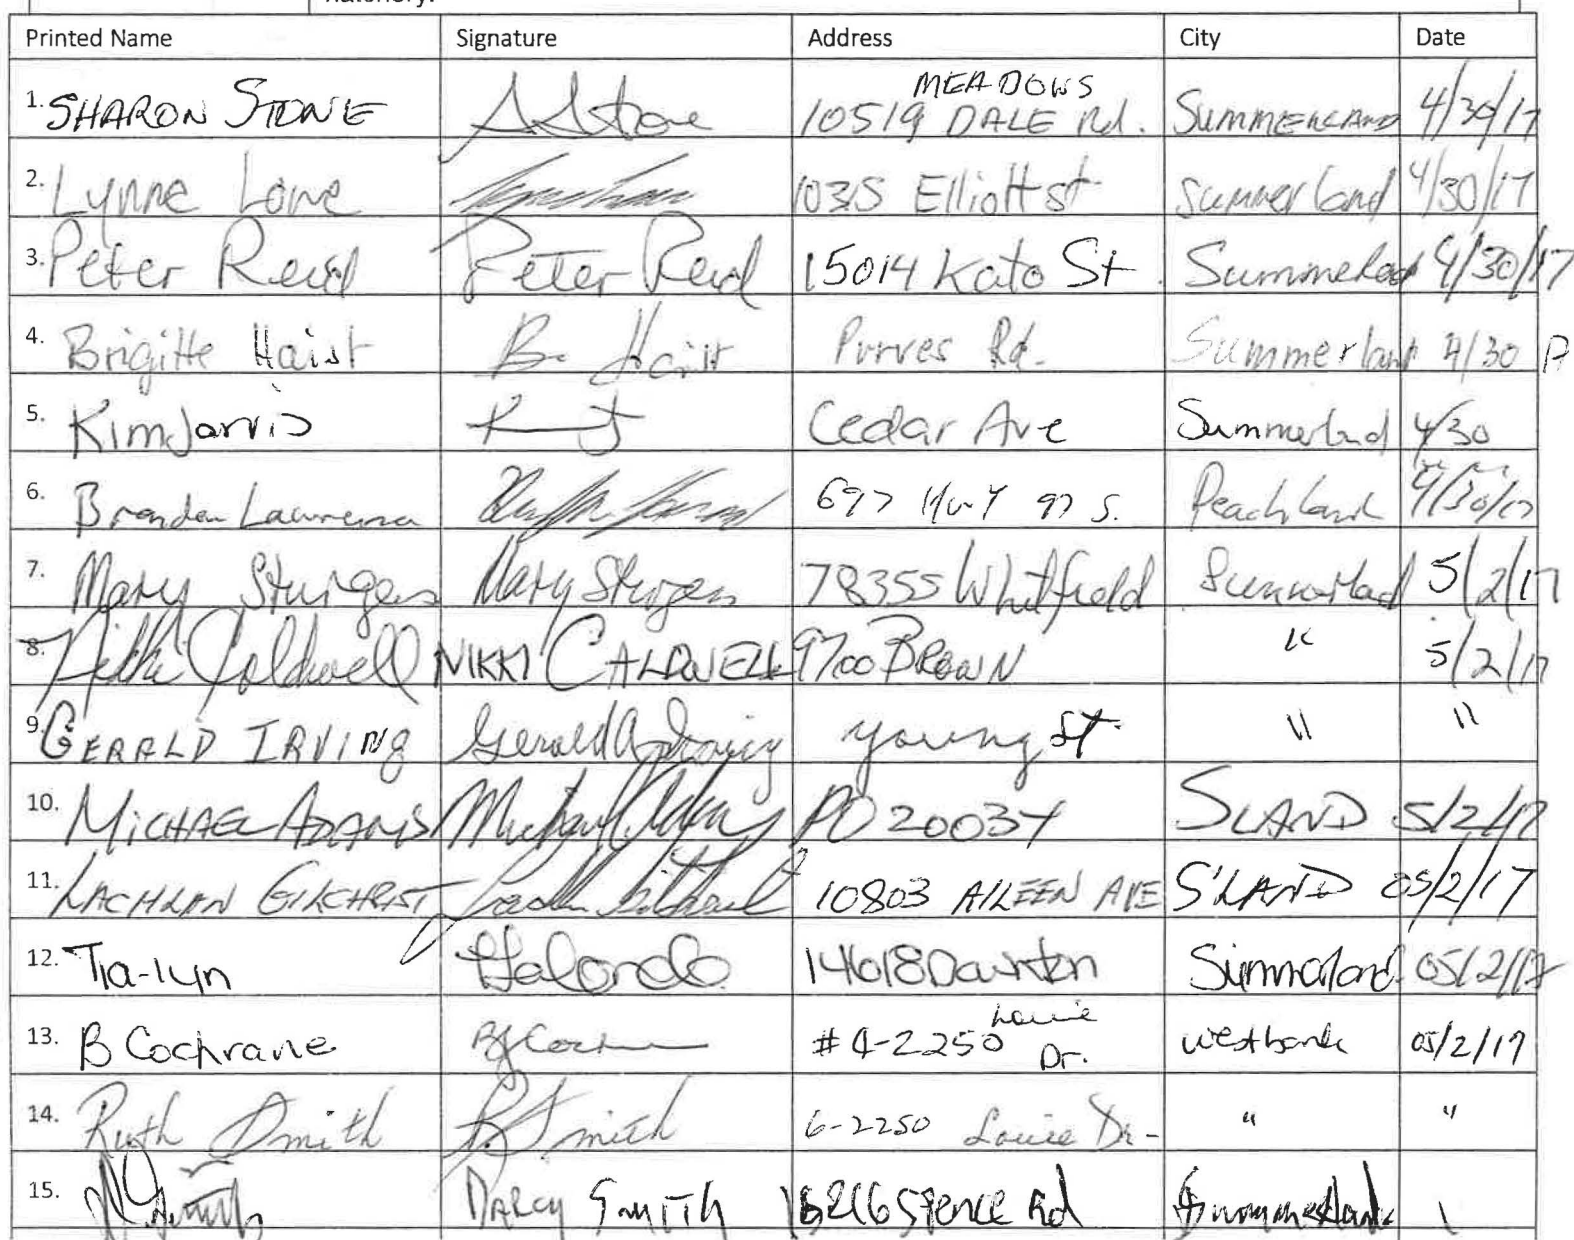 Printed Name Signature Address City Date
MEADOWS
1. SHARON STONE S Stone 10519 DALE Rd. SUMMERLAND 4/30/17
2. Lynne Lowe 1035 Elliott st Summerland 4/30/17
3. Peter Reid Peter Reid 15014 Kato St Summerland 4/30/17
4. Brigitte Haist B. Haist Purves Rd. Summerland 4/30 17
5. Kim Jarvis K J Cedar Ave Summerland 4/30
6. Brendan 697 Hwy 97 S. Peachland 4/30/17
7. Mary Sturgess Mary Sturgess 78355 Whitfield Summerland 5/2/17
8. Nikki Caldwell NIKKI CALDWELL 9700 BROWN " 5/2/17
9. GERALD IRVING Gerald A Irving young st. " "
10. MICHAEL ADAMS Michael Adams PO 20034 SLAND 5/2/17
11. LACHLAN GILCHRIST 10803 AILEEN AVE S'LAND 05/2/17
12. Tia-lyn Galondo 14618 Dawnton Summerland 05/2/17
13. B Cochrane #4-2250 Louie Dr. westbank 05/2/17
14. Ruth Smith R Smith 6-2250 Louie Dr- " "
15. DARCY SMITH 16216 SPENCE Rd Summerland \